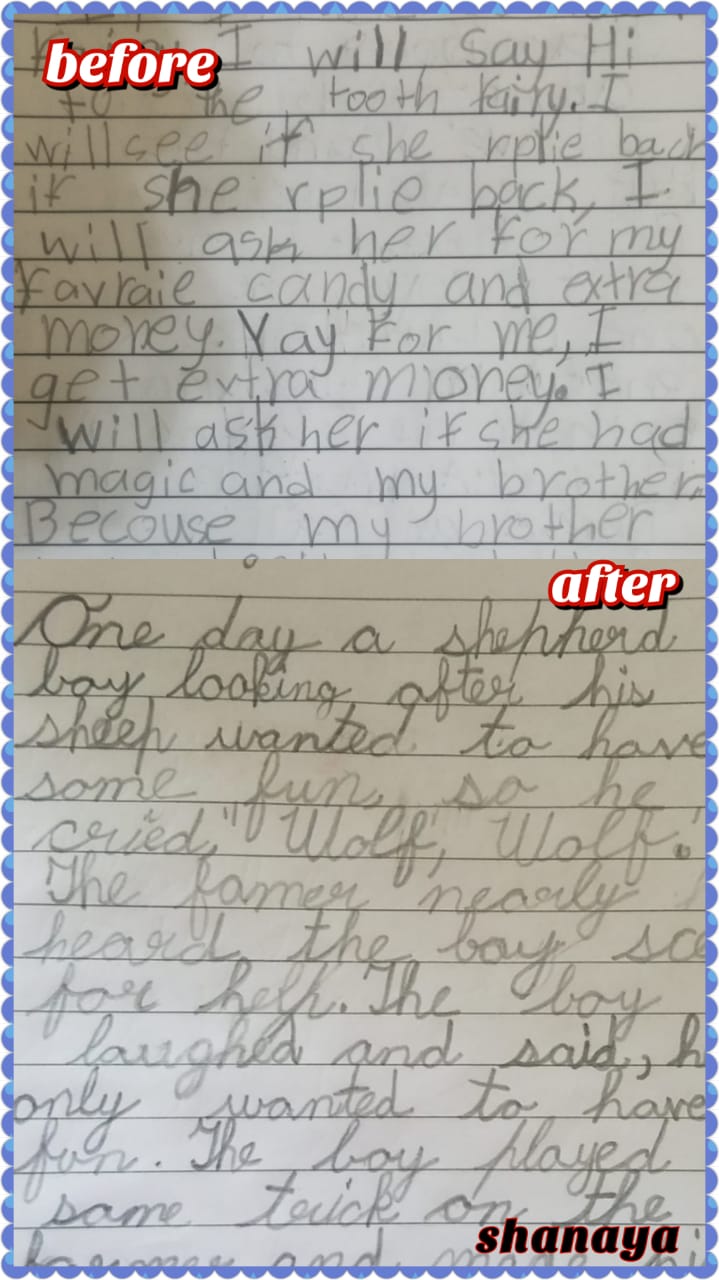 before
I will Say Hi
to the tooth fairy. I
will see if she rplie back
if she rplie back, I
will ask her for my
favraie candy and extra
money. Yay for me, I
get extra money. I
will ask her if she had
magic and my brother.
Becouse my brother
after
One day a shepherd
boy looking after his
sheep wanted to have
some fun, so he
cried, "Wolf, Wolf."
The famer nearly
heard the boy sc
for help. The boy
laughed and said, h
only wanted to have
fun. The boy played
same trick on the
and
shanaya